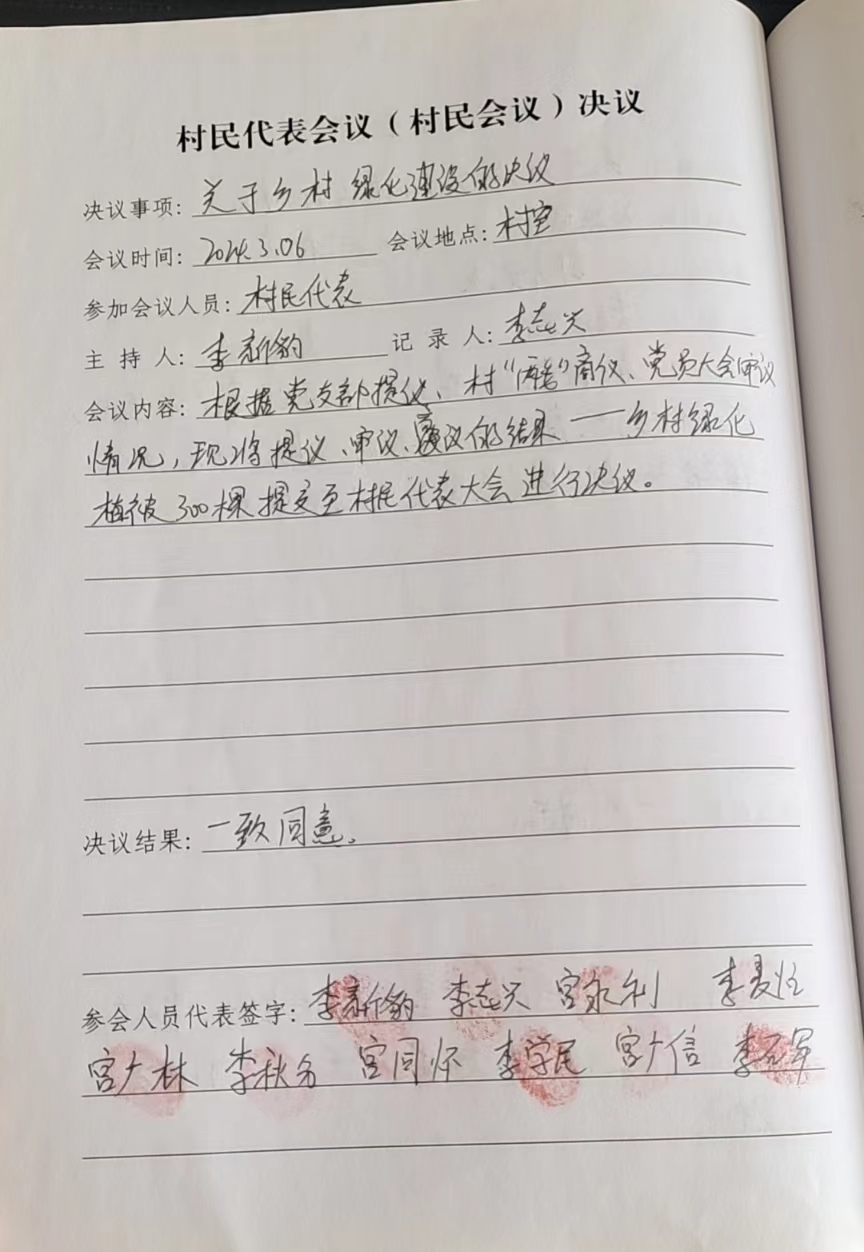 村民代表会议（村民会议）决议
决议事项：关于乡村绿化建设的决议
会议时间：2024.3.06 会议地点：村室
参加会议人员：村民代表
主持人：李新豹 记录人：李志兴
会议内容：根据党支部提议、村“两委”商议、党员大会审议
情况，现将提议、审议、商议的结果——乡村绿化
植被300棵提交至村民代表大会进行决议。
决议结果：一致同意。
参会人员代表签字：李新豹 李志兴 宫永利
宫广林 李秋分 宫同怀 李学民 宫广信